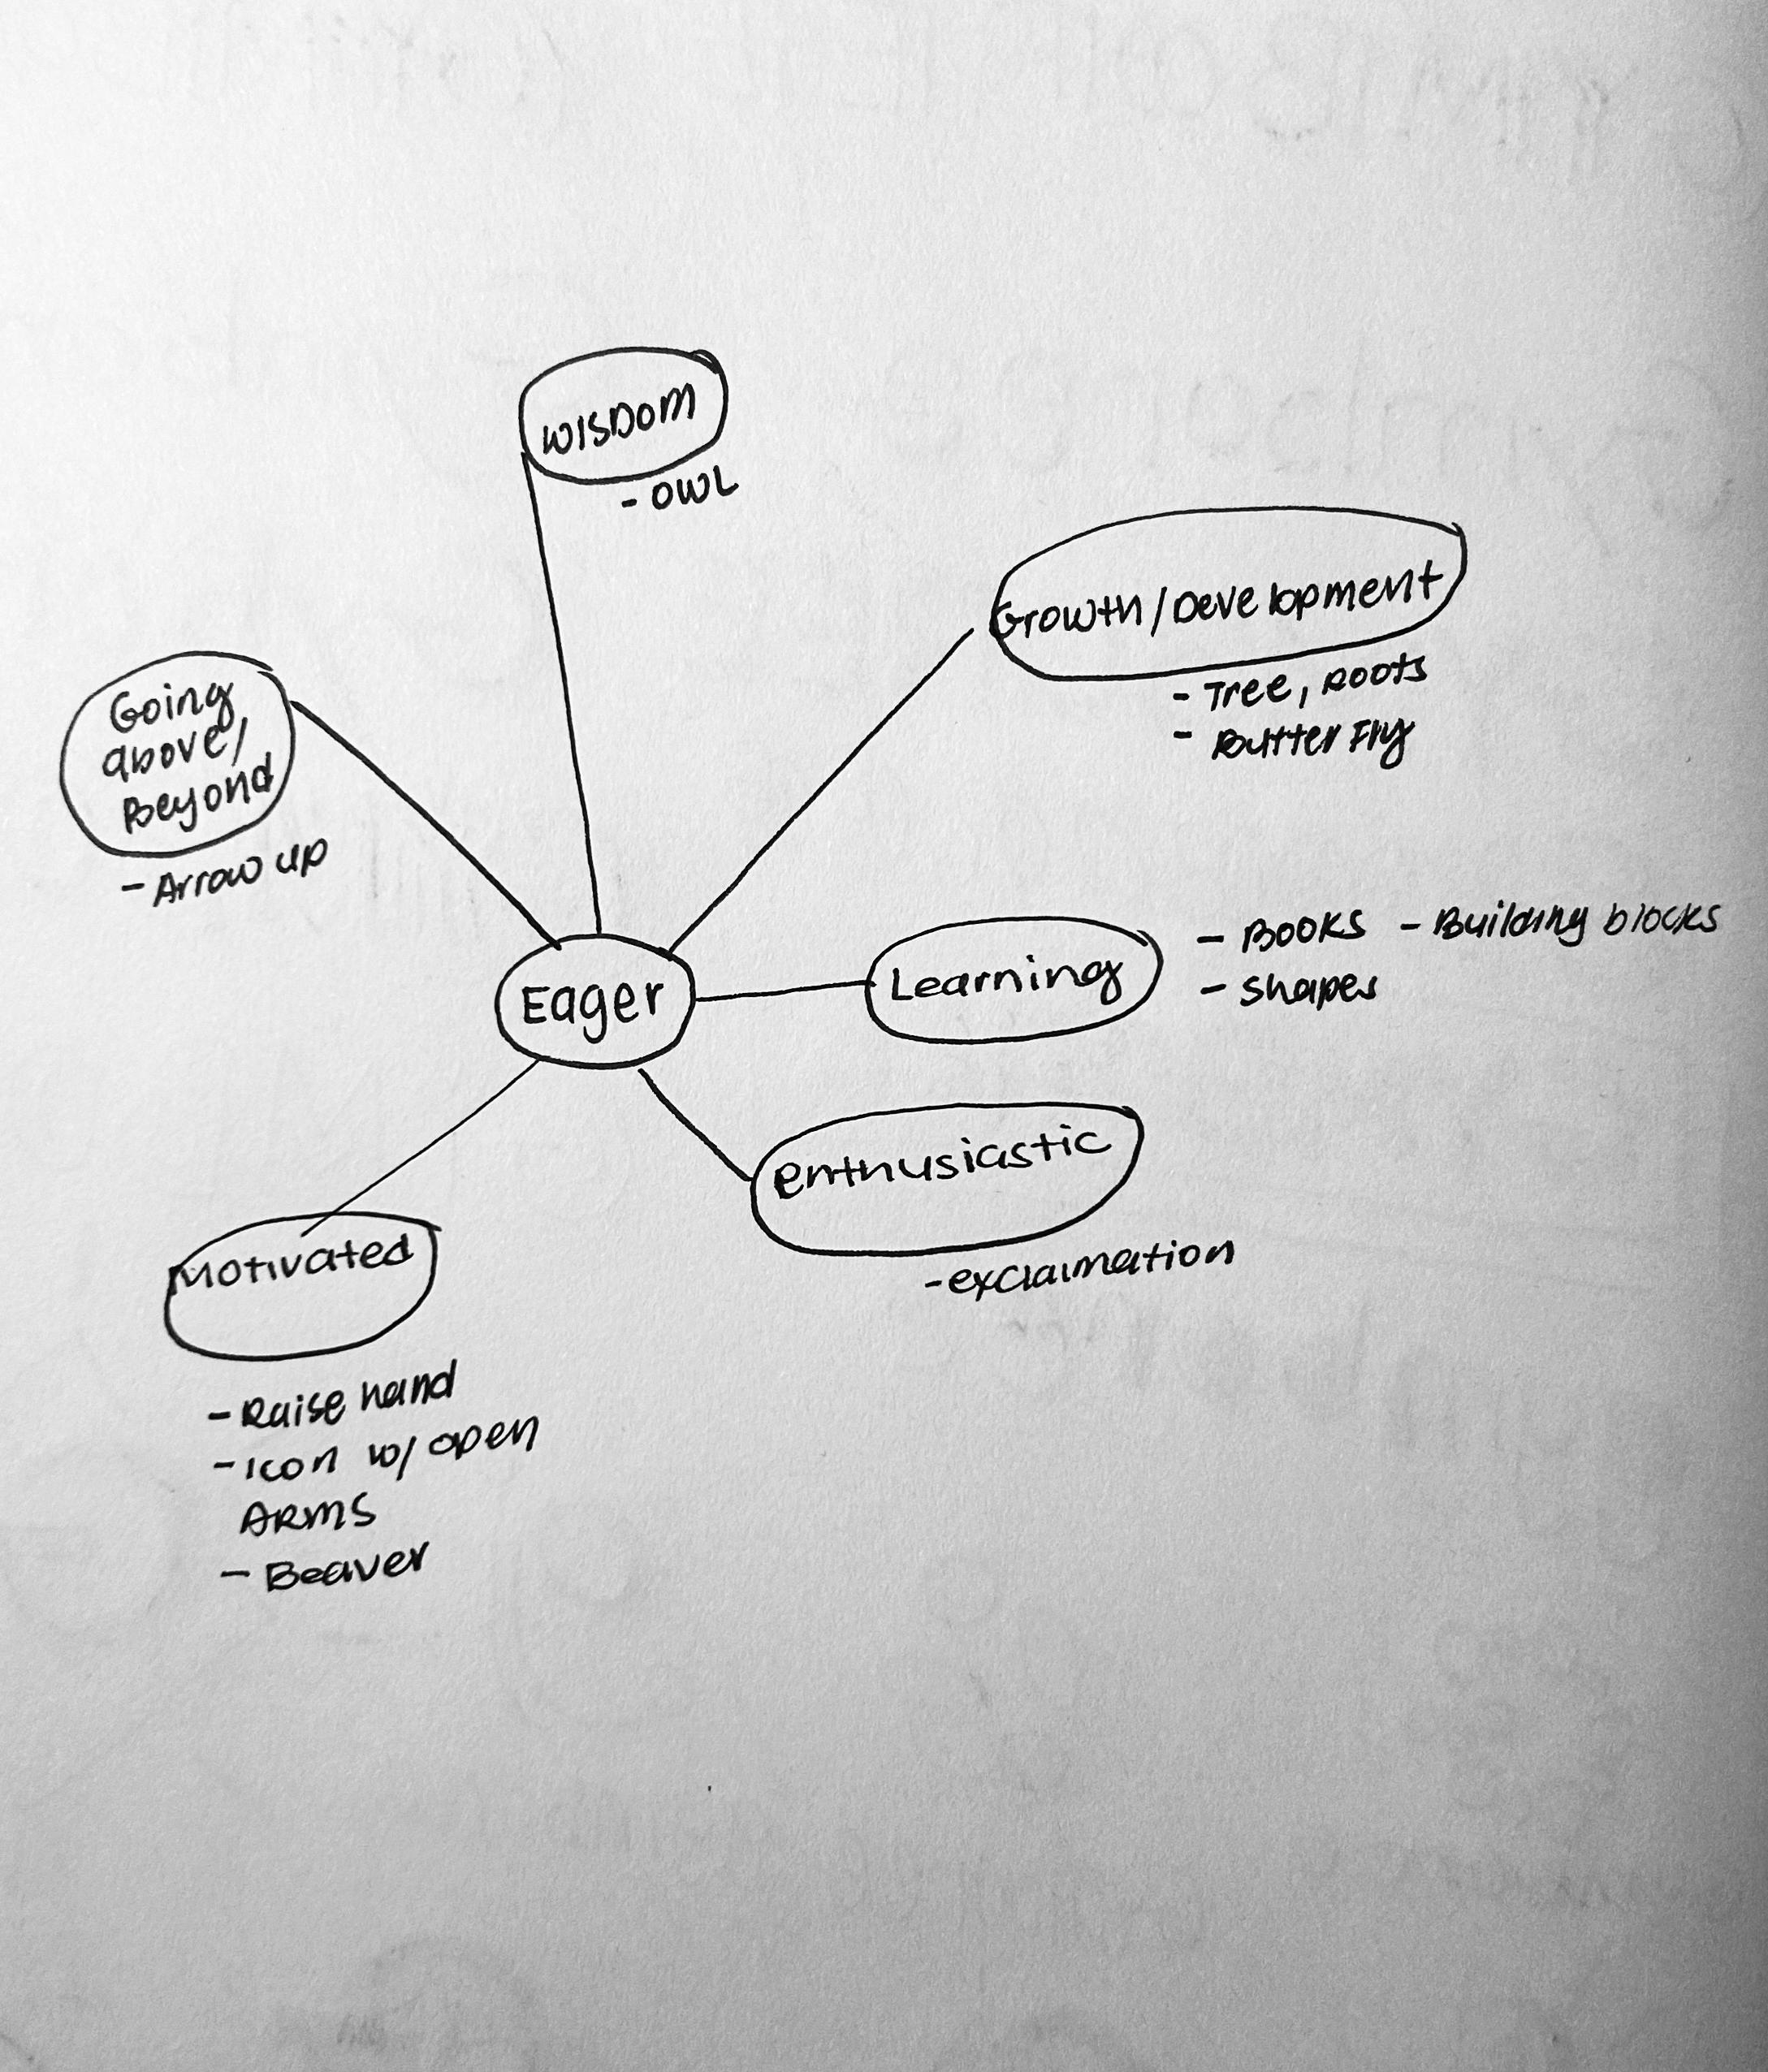 WISDOM
- OWL
Growth/Development
- Tree, Roots
- Butterfly
Going
above/
Beyond
- Arrow up
Eager
Learning
- Books - Building blocks
- shapes
enthusiastic
- exclaimation
Motivated
- Raise hand
- Icon w/ open
ARMS
- Beaver